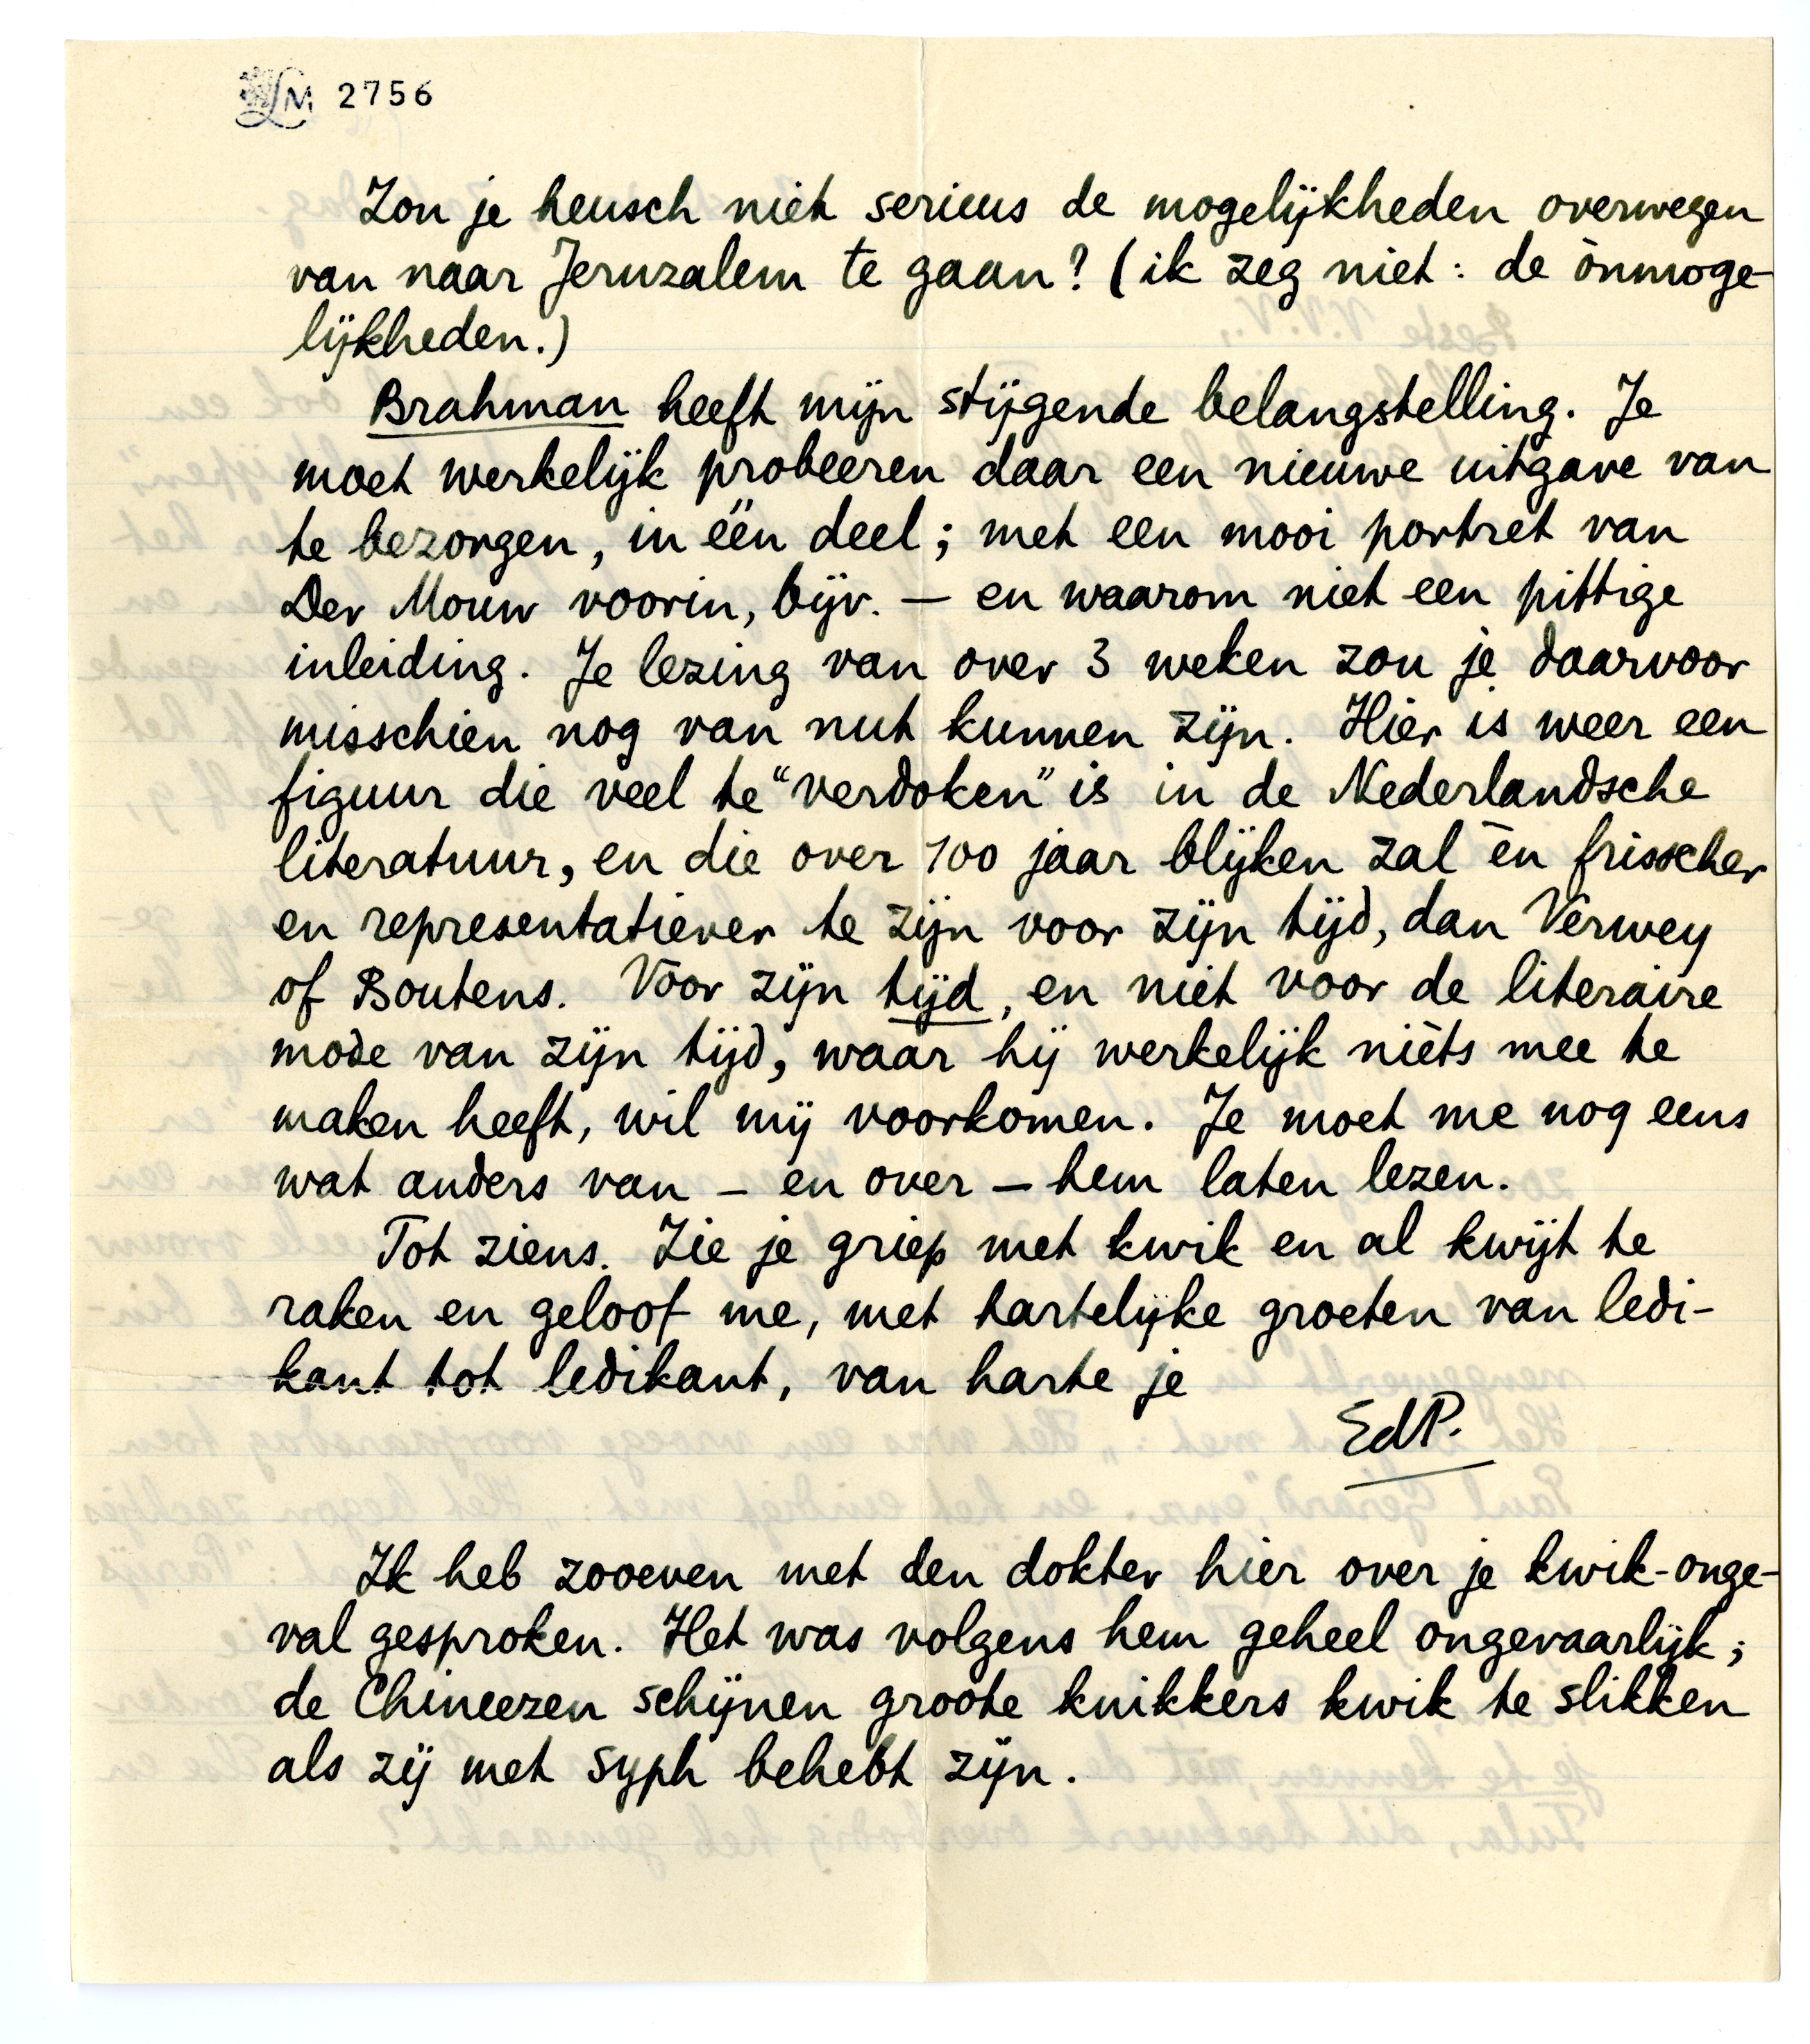 LM 2756
Zou je heusch niet serieus de mogelijkheden overwegen
van naar Jeruzalem te gaan? (ik zeg niet: de ònmoge-
lijkheden.)
Brahman heeft mijn stijgende belangstelling. Je
moet werkelijk probeeren daar een nieuwe uitgave van
te bezorgen, in één deel; met een mooi portret van
Der Mouw voorin, bijv. — en waarom niet een pittige
inleiding. Je lezing van over 3 weken zou je daarvoor
misschien nog van nut kunnen zijn. Hier is weer een
figuur die veel te "verdoken" is in de Nederlandsche
literatuur, en die over 100 jaar blijken zal èn frisscher
en representatiever te zijn voor zijn tijd, dan Verwey
of Boutens. Voor zijn tijd, en niet voor de literaire
mode van zijn tijd, waar hij werkelijk nièts mee te
maken heeft, wil mij voorkomen. Je moet me nog eens
wat anders van – en over – hem laten lezen.
Tot ziens. Zie je griep met kwik en al kwijt te
raken en geloof me, met hartelijke groeten van ledi-
kant tot ledikant, van harte je
EdP.
Ik heb zooeven met den dokter hier over je kwik-onge-
val gesproken. Het was volgens hem geheel ongevaarlijk;
de Chineezen schijnen groote knikkers kwik te slikken
als zij met syph behebt zijn.